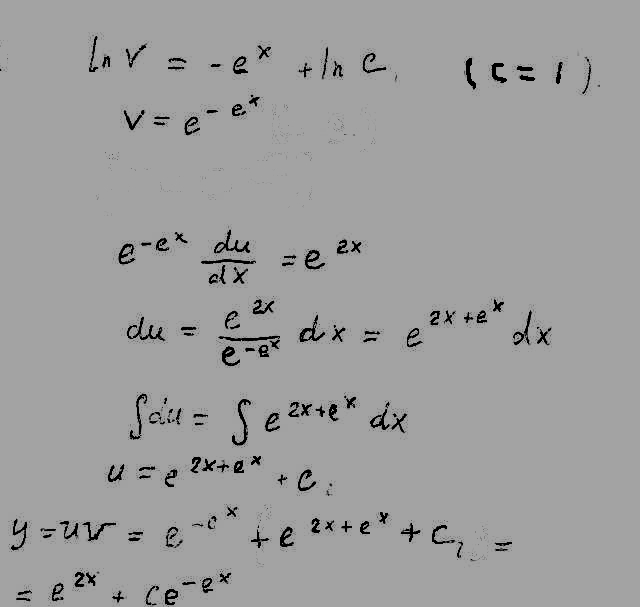 ln v = -e^x + ln c, (c = 1).
v = e^{-e^x}
e^{-e^x} \frac{du}{dx} = e^{2x}
du = \frac{e^{2x}}{e^{-e^x}} dx = e^{2x+e^x} dx
∫du = ∫ e^{2x+e^x} dx
u = e^{2x+e^x} + c
y = uv = e^{-e^x} + e^{2x+e^x} + c, =
= e^{2x} + ce^{-e^x}